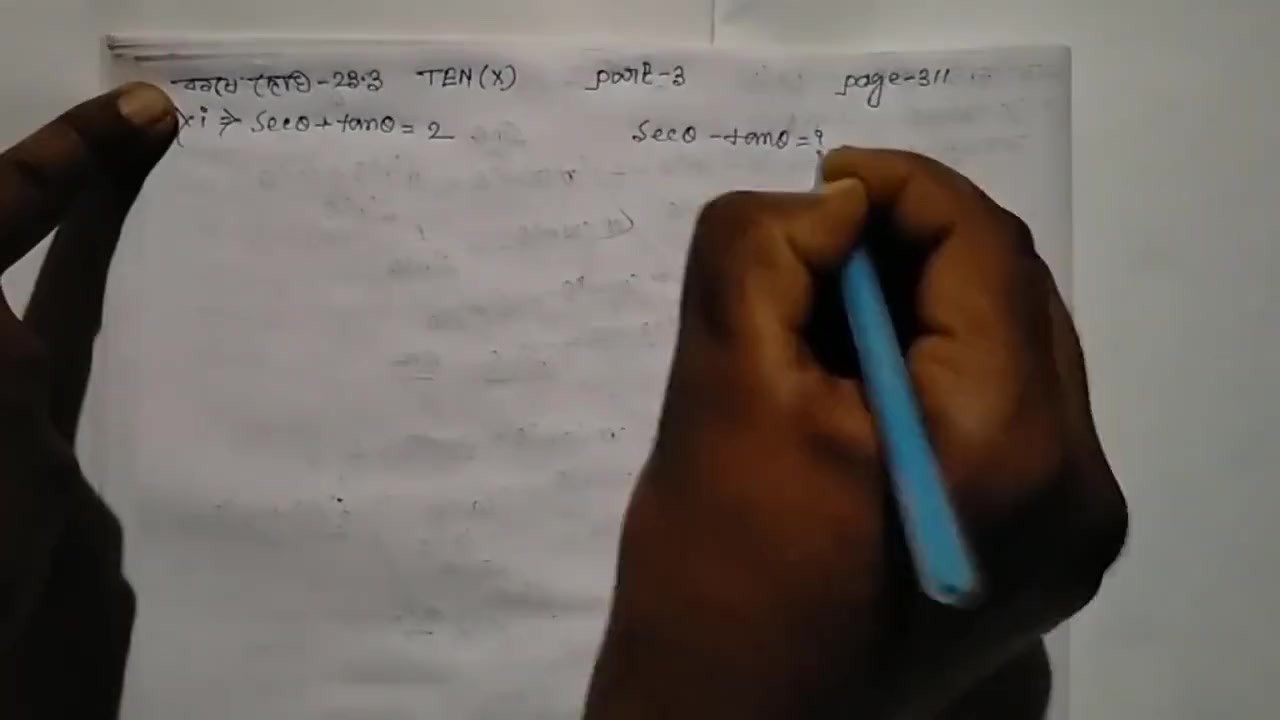 কষে দেখি-23.3 TEN(X) part-3 page-311
xi ⇒ secθ+tanθ=2 secθ-tanθ=?